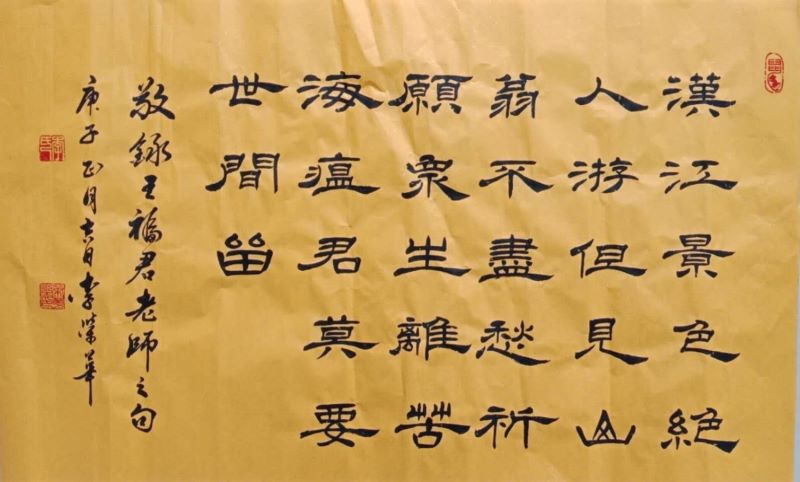 漢江景色絕
人游但見山
翁不盡愁祈
願衆生離苦
海瘟君莫要
世間留
敬錄王福君老師之句
庚子正月吉日李榮華